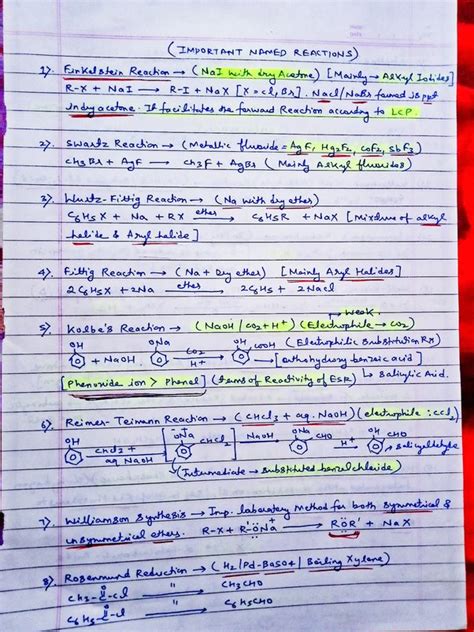 (IMPORTANT NAMED REACTIONS)
1). Finkelstein Reaction → (NaI with dry Acetone) [Mainly → Alkyl Iodides]
R-X + NaI → R-I + NaX [X = Cl, Br]. NaCl/NaBr formed is ppt
in dry acetone. It facilitates the forward Reaction according to LCP.
2). Swartz Reaction → (Metallic fluoride = AgF, Hg2F2, CoF2, SbF3)
CH3Br + AgF → CH3F + AgBr (Mainly Alkyl fluorides)
3). Wurtz-Fittig Reaction → (Na with dry ether)
C6H5X + Na + RX ether → C6H5R + NaX [Mixture of alkyl
halide & Aryl halide]
4). Fittig Reaction → (Na + Dry ether) [Mainly Aryl Halides]
2C6H5X + 2Na ether → 2C6H5 + 2NaCl
→ weak
5). Kolbe's Reaction → (NaOH / CO2 + H+) (Electrophile → CO2)
OH + NaOH ONa CO2 H+ → OH COOH (Electrophilic Substitution Rxn)
[Orthohydroxy benzoic acid]
[Phenoxide ion > Phenol] (terms of Reactivity of ESR) ↳ Salicylic Acid.
6). Reimer-Teimann Reaction → (CHCl3 + aq. NaOH) (electrophile : CCl2)
OH CHCl3 + aq NaOH → [ONa+ CHCl2] NaOH → ONa CHO H+ → OH CHO → Salicyaldehyde
(Intermediate → Substituted benzal chloride)
7). Williamson Synthesis → Imp. laboratory Method for both symmetrical &
unsymmetrical ethers. R-X + R-ÖNa+ → RÖR' + NaX
8). Rosenmund Reduction → (H2 / Pd-BaSO4 / Boiling Xylene)
CH3-C-Cl O " → CH3CHO
C6H5-C-Cl O " → C6H5CHO